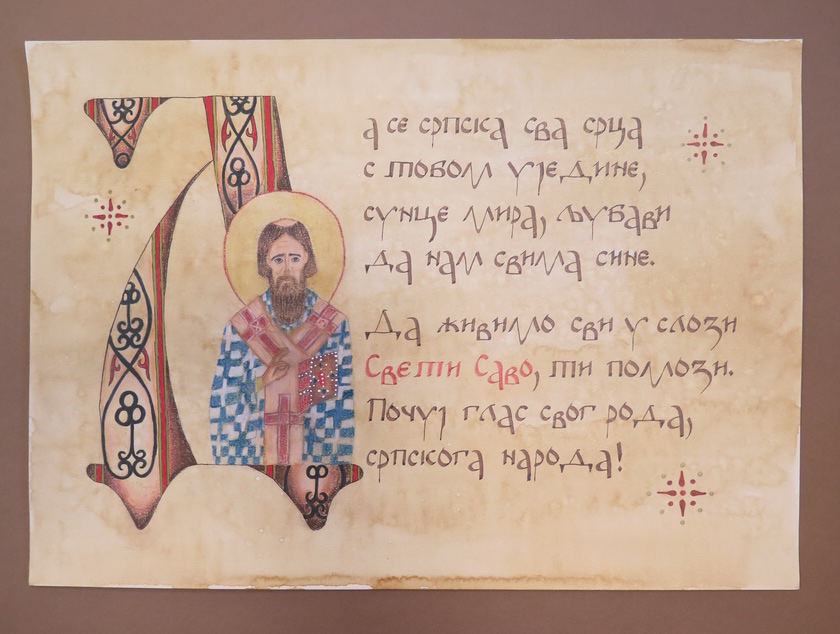 Да се српска сва срца
с тобом уједине,
сунце мира, љубави
да нам свима сине.
Да живимо сви у слози
Свети Саво, ти помози.
Почуј глас свог рода,
српскога народа!